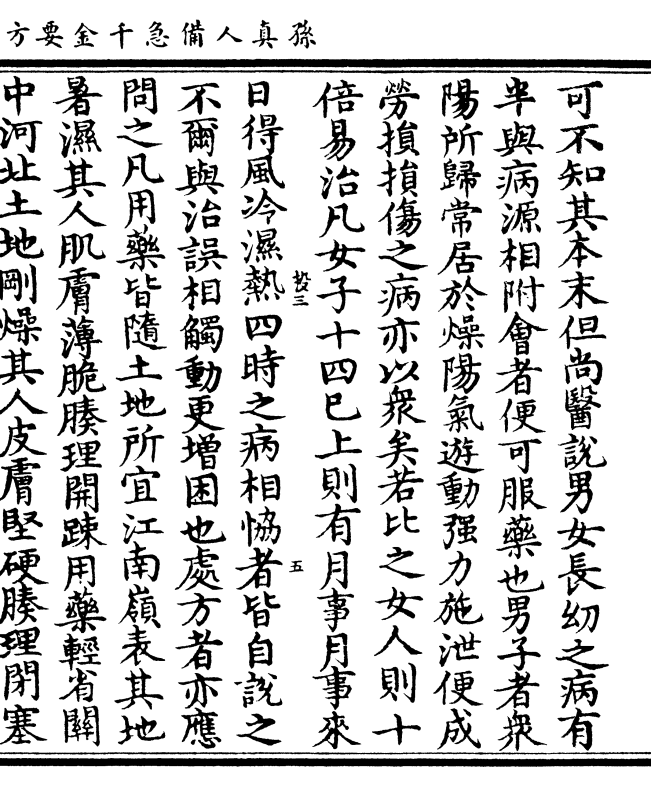 孫真人備急千金要方
可不知其本末但尚醫說男女長幼之病有
半與病源相附會者便可服藥也男子者衆
陽所歸常居於燥陽氣遊動强力施泄便成
勞損損傷之病亦以衆矣若比之女人則十
倍易治凡女子十四已上則有月事月事來
卷三
五
日得風冷濕熱四時之病相恊者皆自說之
不爾與治誤相觸動更增困也處方者亦應
問之凡用藥皆隨土地所宜江南嶺表其地
暑濕其人肌膚薄脆腠理開踈用藥輕省關
中河北土地剛燥其人皮膚堅硬腠理閉塞